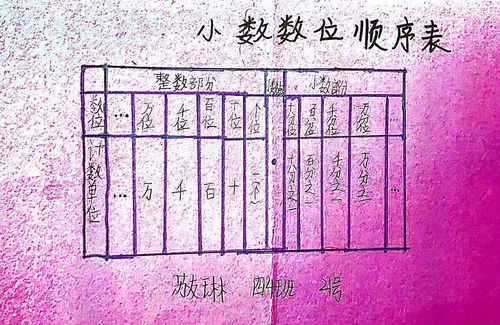 小数数位顺序表
整数部分 小数点 小数部分
数位 … 万位 千位 百位 十位 个位 · 十分位 百分位 千分位 万分位 …
计数单位 … 万 千 百 十 一(个) 十分之一 百分之一 千分之一 万分之一 …
四4班 2号